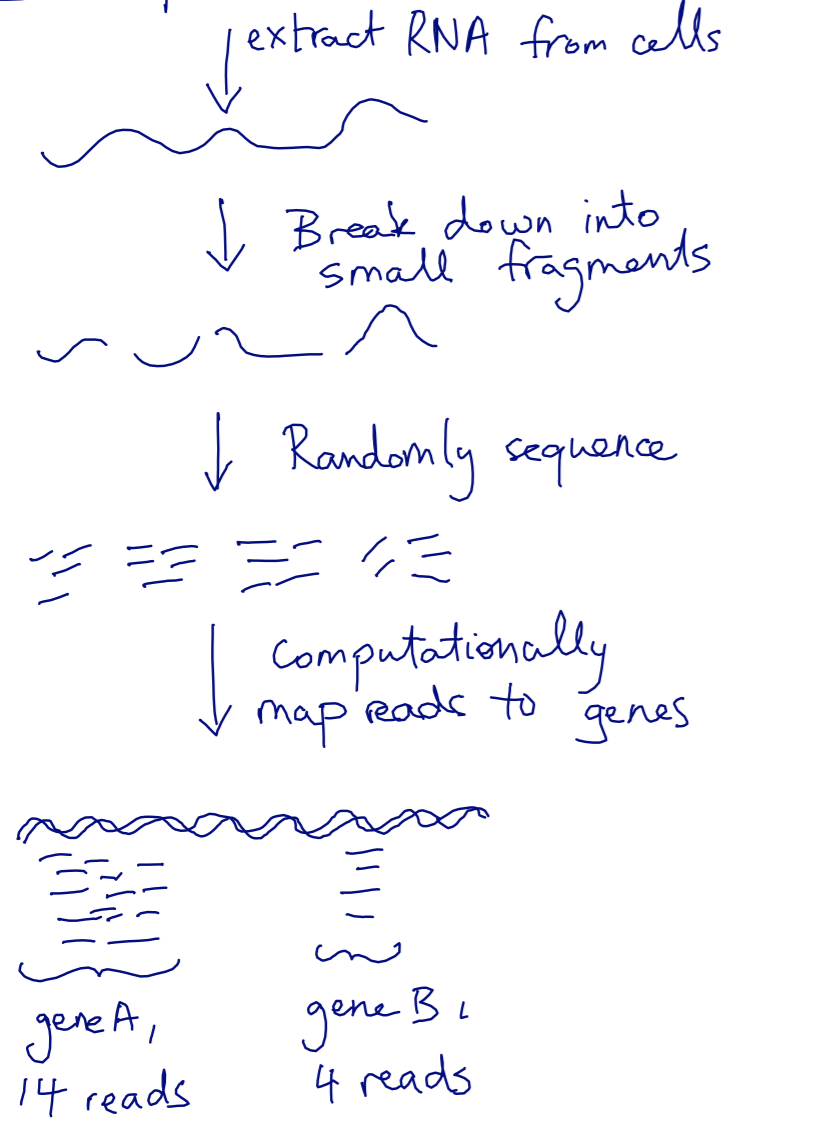 extract RNA from cells
Break down into
small fragments
Randomly sequence
Computationally
map reads to genes
gene A,
14 reads
gene B,
4 reads